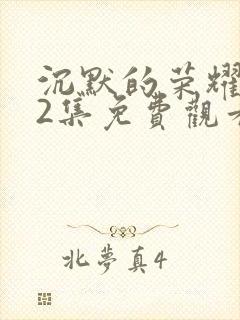 沉默的荣耀
2集免費觀
北夢真4